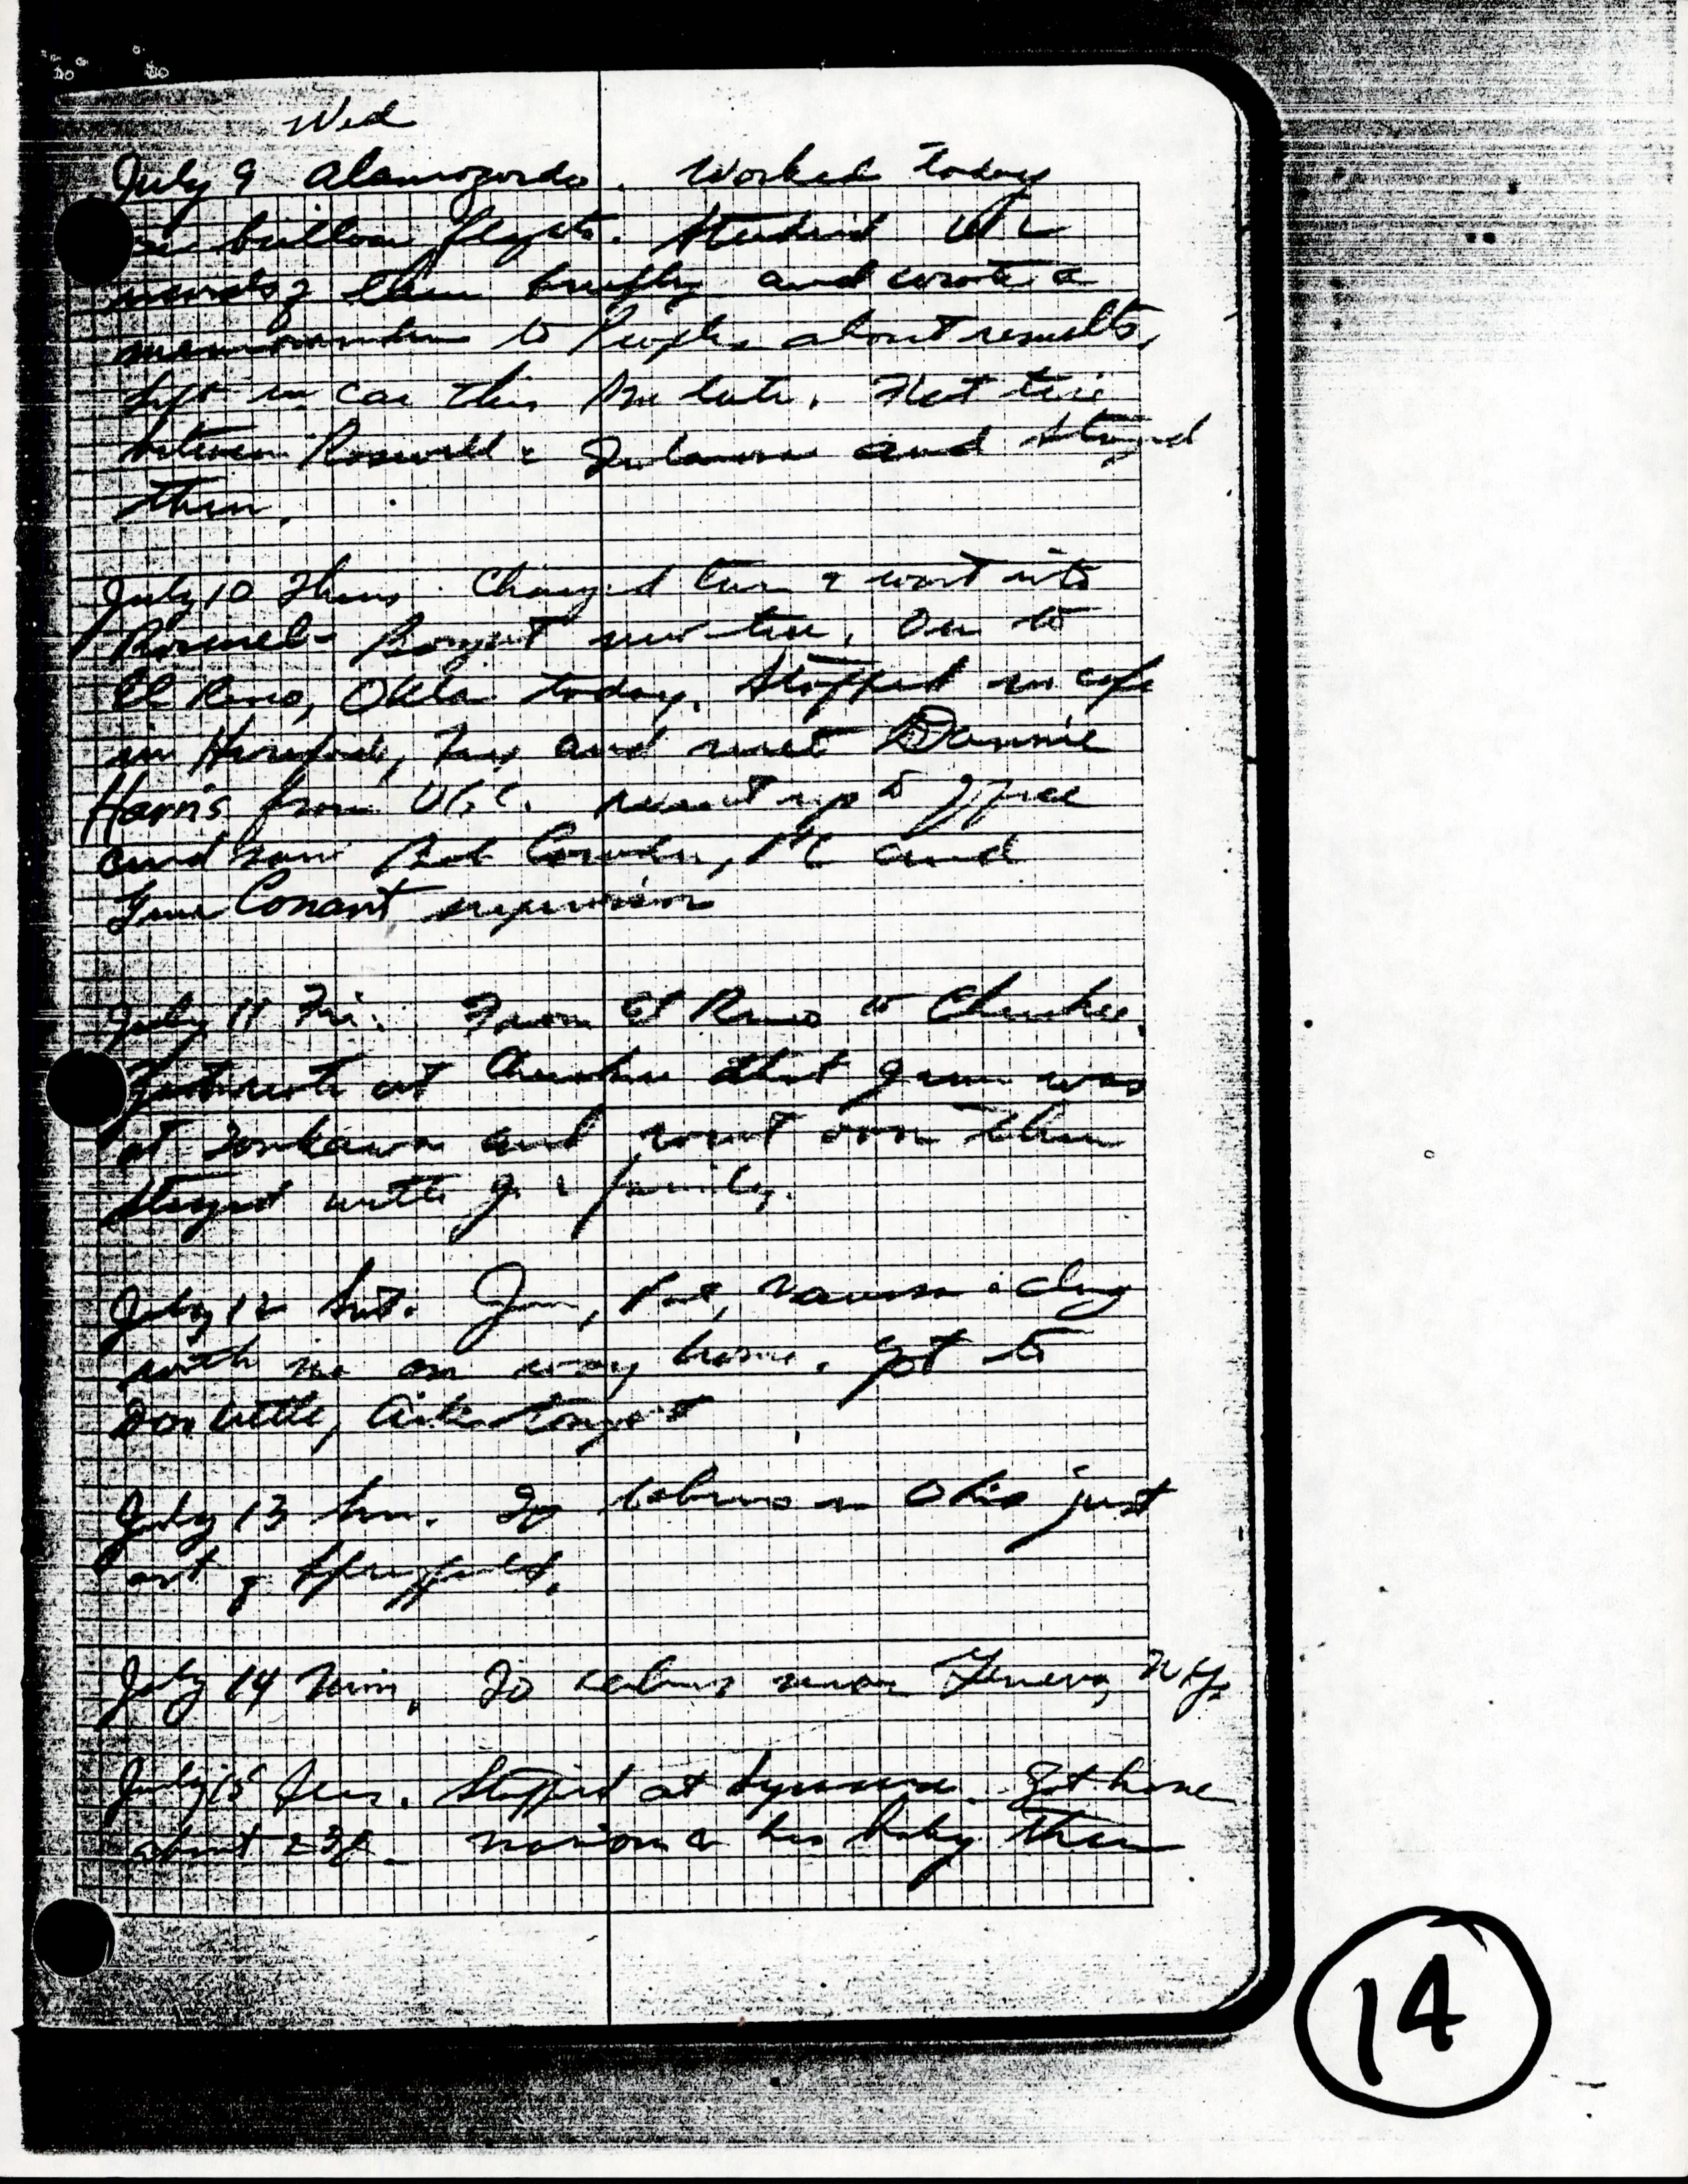 Wed
July 9 Alamogordo. Worked today
on balloon flights. Studied
records of them briefly and wrote a
memorandum to Peoples about results.
Left in car this PM late. Flat tire
between Roswell & Tularosa and stayed
there.
July 10 Thurs. Changed tire & went into
Roswell - Bought new tire. On to
El Reno, Okla today. Stopped in cafe
in Hereford, Tex and met Dannie
Harris from Went up to office
and saw Bob and
Conant supervisor
July 11 Fri. From El Reno to Cherokee.
at Cherokee that was
at Tonkawa and went over there
Stayed with & family.
July 12 Sat. riding
with me on way home. Got to
tonight
July 13 Sun. To cabins in Ohio just
of Springfield.
July 14 Mon. To cabins near Geneva, N.Y.
July 15 Tues. Stopped at Syracuse. Got home
about 230. her baby there
14